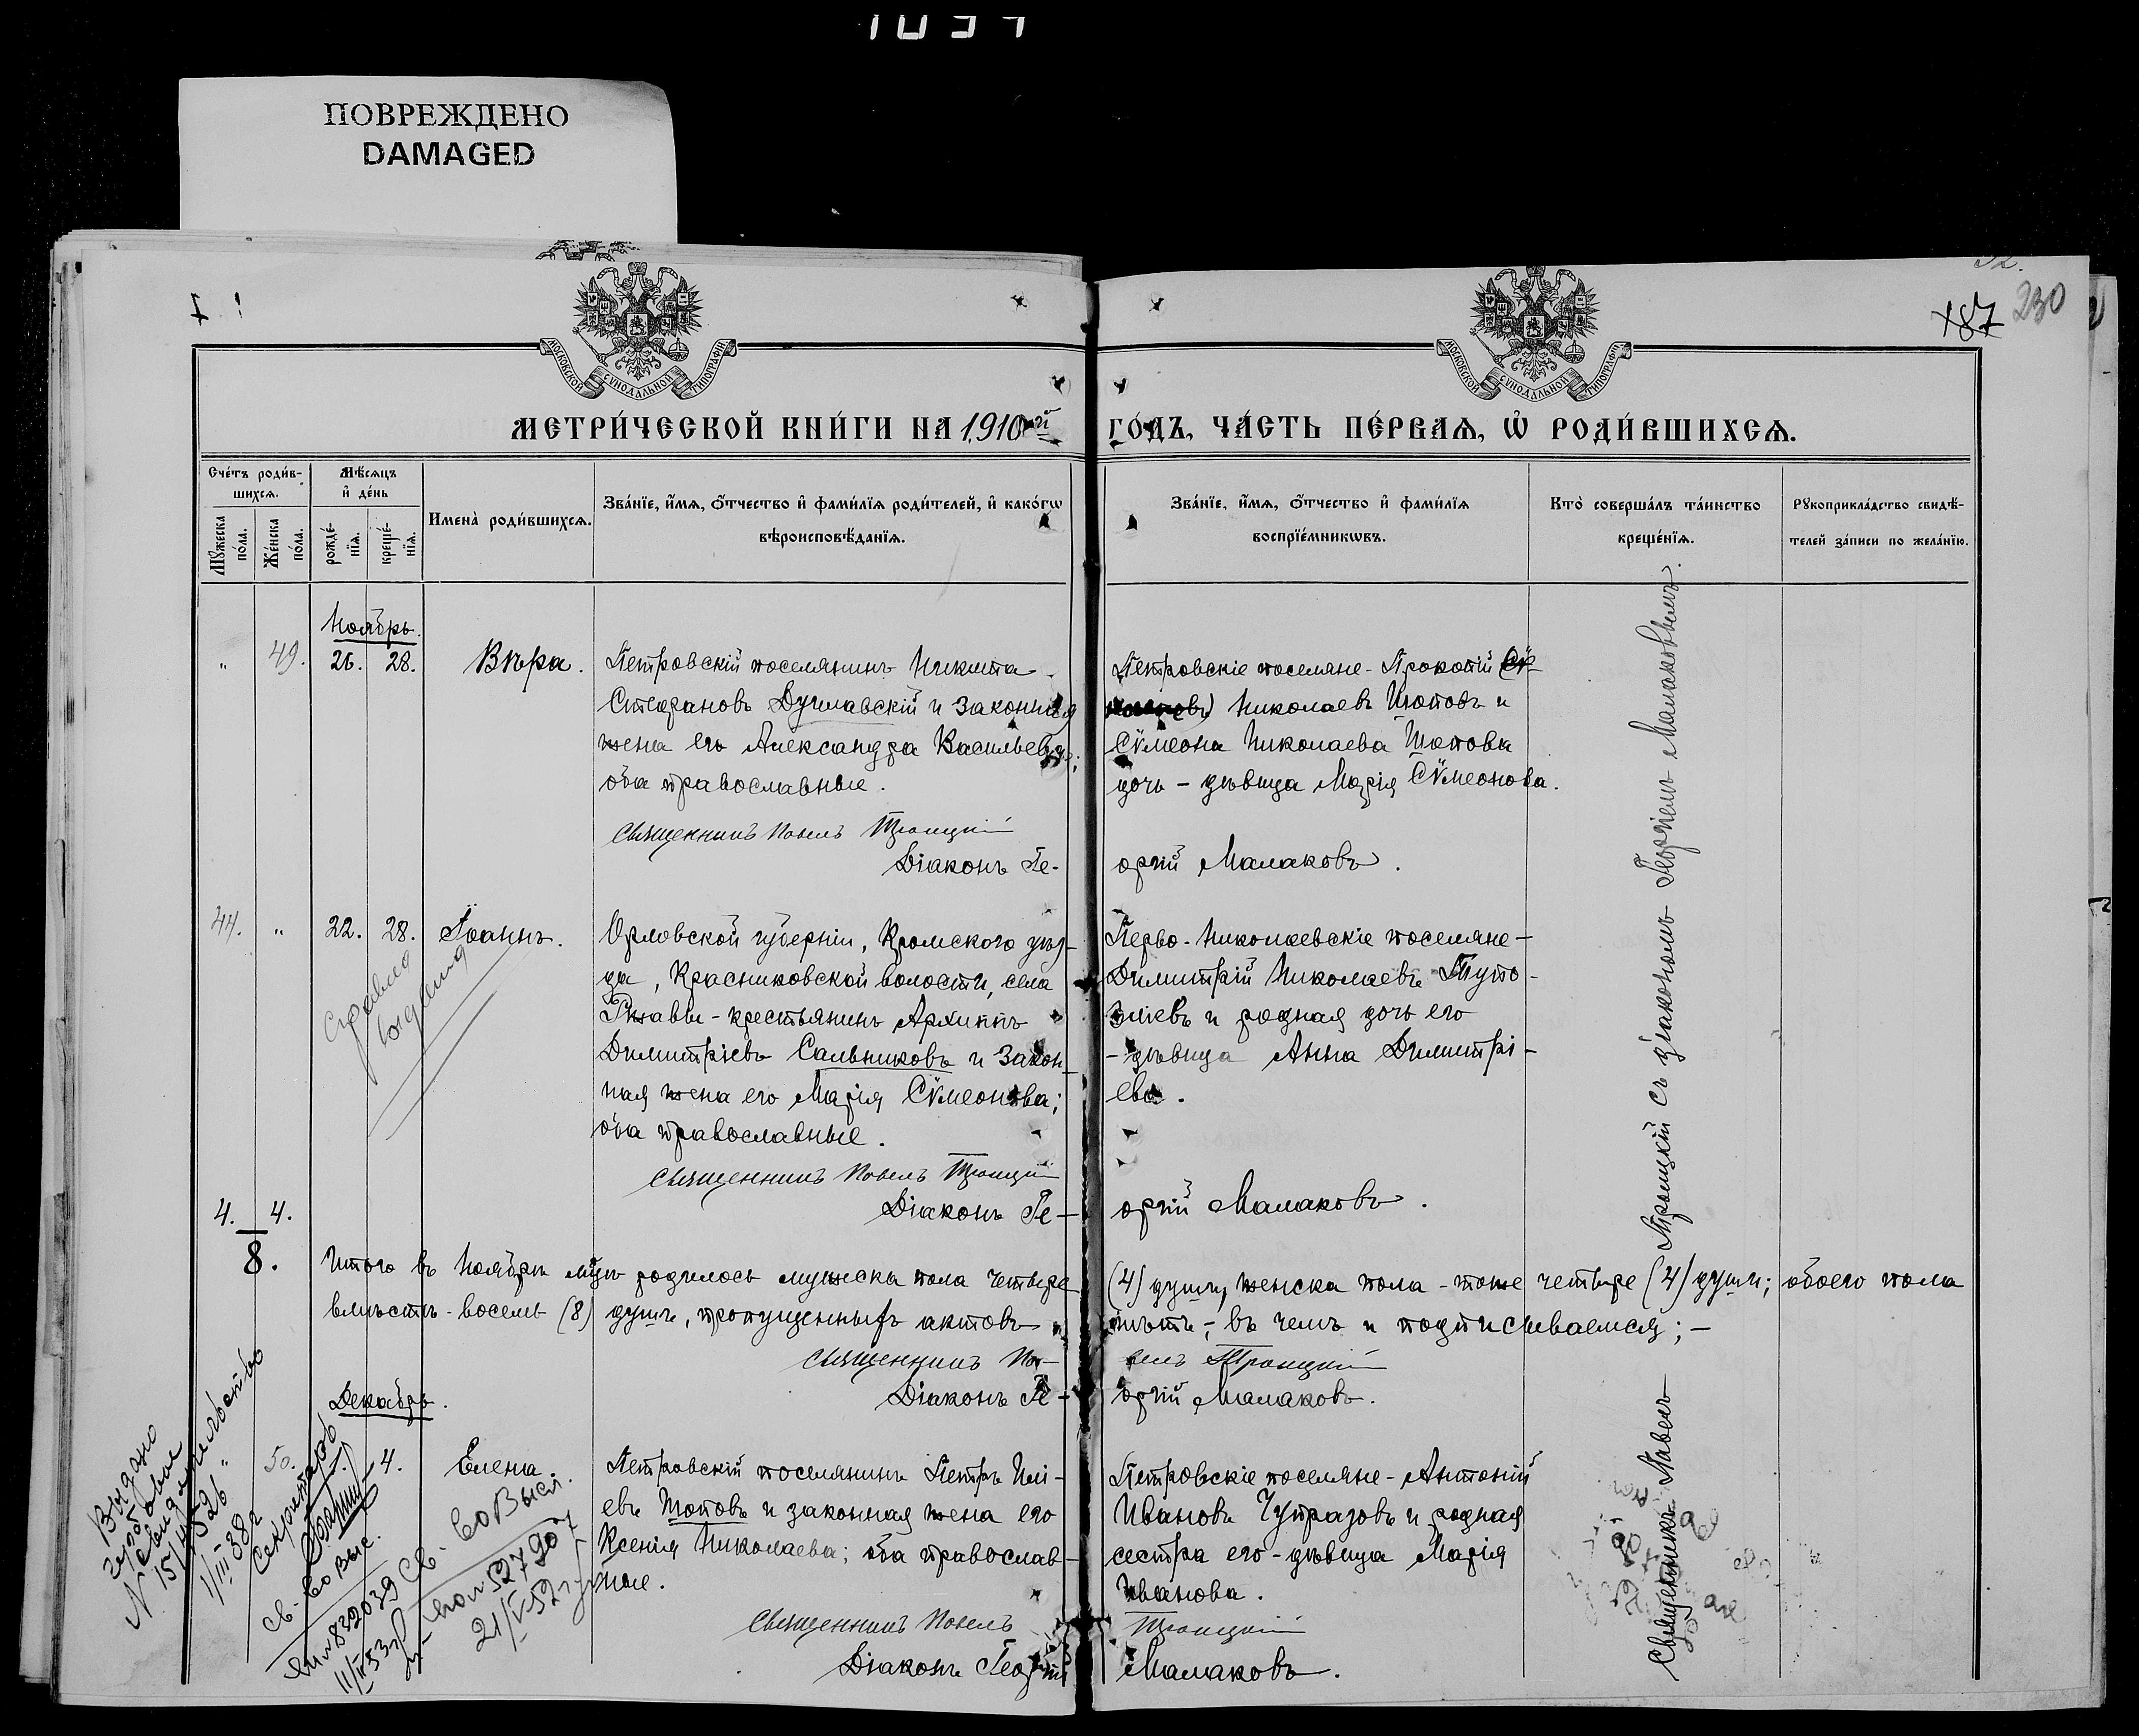 1037
ПОВРЕЖДЕНО
DAMAGED
187 230
МОСКОВСКОЙ СѴНОДАЛЬНОЙ ТИПОГРАФІИ
МОСКОВСКОЙ СѴНОДАЛЬНОЙ ТИПОГРАФІИ
МЕТРИ́ЧЕСКОЙ КНИ́ГИ НА 1910й ГО́ДЪ, ЧА́СТЬ ПЕ́РВАЯ, Ѡ҆ РОДИ́ВШИХСЯ.
Сче́тъ роди́вшихся.
Мꙋ́жеска по́ла.
Же́нска по́ла.
Мѣ́сяцъ и҆ де́нь
рожде́нїя.
креще́нїя.
Имена̀ роди́вшихся.
Зва́нїе, и҆́мя, ѻ҆́тчество и҆ фами́лїя роди́телей, и҆ како́гѡ
вѣроисповѣ́данїя.
Зва́нїе, и҆́мя, ѻ҆́тчество и҆ фами́лїя
воспрїе́мникѡвъ.
Кто̀ соверша́лъ та́инство
креще́нїя.
Рꙋкоприкла́дство свидѣ́-
телей за́писи по жела́нїю.
Ноябрь.
" 49. 26. 28. Вѣра.
Петровскій поселянинъ Никита
Стефановъ Дуплавскій и законная
жена его Александра Васильева;
оба православные.
Священникъ Павелъ Троицкій
Діаконъ Ге-
Петровскіе поселяне - Прокопій
Николаевъ Шоповъ и
Сѵмеона Николаева Шопова
дочь - дѣвица Марія Сѵмеонова.
оргій Малаковъ.
44. " 22. 28. Іоаннъ.
Орловской губерніи, Кромского уѣз-
да, Красниковской волости, села
Ржавы - крестьянинъ Архиппъ
Димитріевъ Сальниковъ и закон-
ная жена его Марія Сѵмеонова;
оба православные.
Священникъ Павелъ Троицкій
Діаконъ Ге-
Перво-Николаевскіе поселяне -
Димитрій Николаевъ Тупо-
зліевъ и родная дочь его
- дѣвица Анна Димитрі-
ева.
оргій Малаковъ.
4. 4.
8.
Итого въ Ноябрѣ мцѣ родилось мужеска пола четыре (4) души, женска пола - тоже четыре (4) души; обоего пола
вмѣстѣ - восемь (8) душъ, пропущенныхъ актовъ нѣтъ; - въ чемъ и подписываемся; -
Священникъ Павелъ Троицкій
Діаконъ Георгій Малаковъ.
Декабрь.
50. 4. Елена.
Петровскій поселянинъ Петръ Илі-
евъ Шоповъ и законная жена его
Ксенія Николаева; оба православ-
ные.
Священникъ Павелъ
Діаконъ Георгій
Петровскіе поселяне - Антоній
Ивановъ Чупразовъ и родная
сестра его - дѣвица Марія
Иванова.
Троицкій
Малаковъ.
Священникъ Павелъ Троицкій съ діакономъ Георгіемъ Малаковымъ.
Выдано
гербовое
свидетельство
1/III-38г
Секретарь
св-во выс.
832039
11/II 53г
св-во высл.
527907
21/V-52г